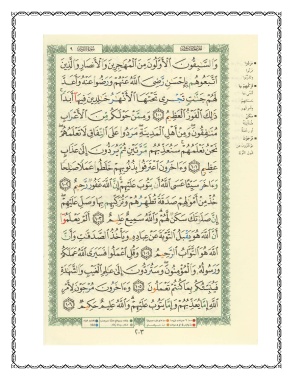 وَالسَّٰبِقُونَ الْأَوَّلُونَ مِنَ الْمُهَٰجِرِينَ وَالْأَنصَارِ وَالَّذِينَ
اتَّبَعُوهُم بِإِحْسَٰنٍ رَّضِيَ اللَّهُ عَنْهُمْ وَرَضُوا عَنْهُ وَأَعَدَّ
لَهُمْ جَنَّٰتٍ تَجْرِي تَحْتَهَا الْأَنْهَٰرُ خَٰلِدِينَ فِيهَا أَبَدًا
ذَٰلِكَ الْفَوْزُ الْعَظِيمُ ۝ وَمِمَّنْ حَوْلَكُم مِّنَ الْأَعْرَابِ
مُنَٰفِقُونَ وَمِنْ أَهْلِ الْمَدِينَةِ مَرَدُوا عَلَى النِّفَاقِ لَا تَعْلَمُهُمْ
نَحْنُ نَعْلَمُهُمْ سَنُعَذِّبُهُم مَّرَّتَيْنِ ثُمَّ يُرَدُّونَ إِلَىٰ عَذَابٍ
عَظِيمٍ ۝ وَءَاخَرُونَ اعْتَرَفُوا بِذُنُوبِهِمْ خَلَطُوا عَمَلًا صَٰلِحًا
وَءَاخَرَ سَيِّئًا عَسَى اللَّهُ أَن يَتُوبَ عَلَيْهِمْ إِنَّ اللَّهَ غَفُورٌ رَّحِيمٌ ۝
خُذْ مِنْ أَمْوَٰلِهِمْ صَدَقَةً تُطَهِّرُهُمْ وَتُزَكِّيهِم بِهَا وَصَلِّ عَلَيْهِمْ
إِنَّ صَلَوٰتَكَ سَكَنٌ لَّهُمْ وَاللَّهُ سَمِيعٌ عَلِيمٌ ۝ أَلَمْ يَعْلَمُوا
أَنَّ اللَّهَ هُوَ يَقْبَلُ التَّوْبَةَ عَنْ عِبَادِهِ وَيَأْخُذُ الصَّدَقَٰتِ وَأَنَّ
اللَّهَ هُوَ التَّوَّابُ الرَّحِيمُ ۝ وَقُلِ اعْمَلُوا فَسَيَرَى اللَّهُ عَمَلَكُمْ
وَرَسُولُهُ وَالْمُؤْمِنُونَ وَسَتُرَدُّونَ إِلَىٰ عَٰلِمِ الْغَيْبِ وَالشَّهَٰدَةِ
فَيُنَبِّئُكُم بِمَا كُنتُمْ تَعْمَلُونَ ۝ وَءَاخَرُونَ مُرْجَوْنَ لِأَمْرِ
اللَّهِ إِمَّا يُعَذِّبُهُمْ وَإِمَّا يَتُوبُ عَلَيْهِمْ وَاللَّهُ عَلِيمٌ حَكِيمٌ ۝
٢٠٣